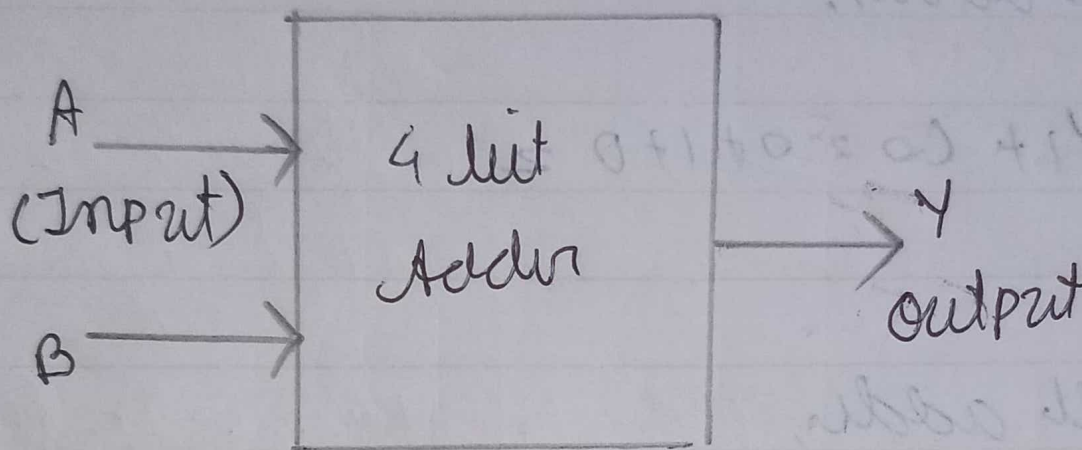 A
(Input)
B
4 bit
Adder
Y
output